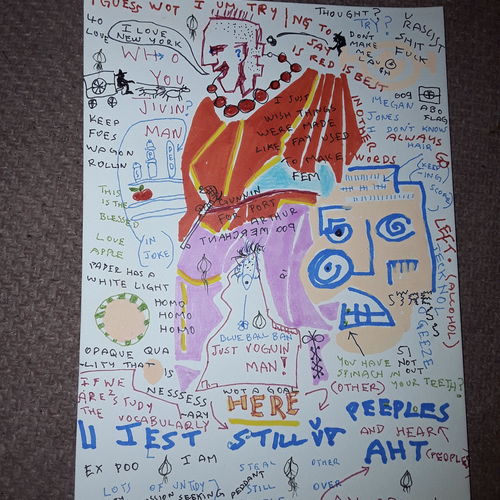 I GUESS WOT I UM TRY ING TO
SAY
IS RED IS BEST
THOUGHT?
TRY?
DON'T
MAKE
ME
LAUGH
RASCIST
SHIT
FUCK
40
LOVE
I LOVE
NEW YORK
WHO
YOU
JIVIN?
MAN
KEEP
FOES
WAGON
ROLLIN
009
ABO
FLAG
MEGAN
JONES
I DON'T KNOW
ALWAYS
HAIR
I JUST
WISH THINGS
WERE MADE
LIKE FAT USED
TO MAKE
FEM
WORDS
(KEEPING
SCORE?)
THIS
IS THE
BLESSED
LOVE
APPLE
(IN
JOKE)
GUNNIN
FOR PORT
ARTHUR
MERCHANT
LEFT.
(ALCOHOL)
PAPER HAS A
WHITE LIGHT
HOMO
HOMO
HOMO
BLUE BALL BAN
JUST VOGUIN
MAN!
OPAQUE QUA
LITY THAT IS
NESSSESS
ARY
IF WE
ARE STUDY
THE VOCABULARLY
YOU HAVE NOT
SPINACH IN OUT
YOUR TEETH?
WOT A GOAL
HERE
(OTHER)
PEEPLES
AND HEART
AHT
(PEOPLE)
U JEST STILL IT
EX POO
I AM
STEAL OTHER
LOTS OF UNTIDY
STILL OVER
SEEKING PENDANT